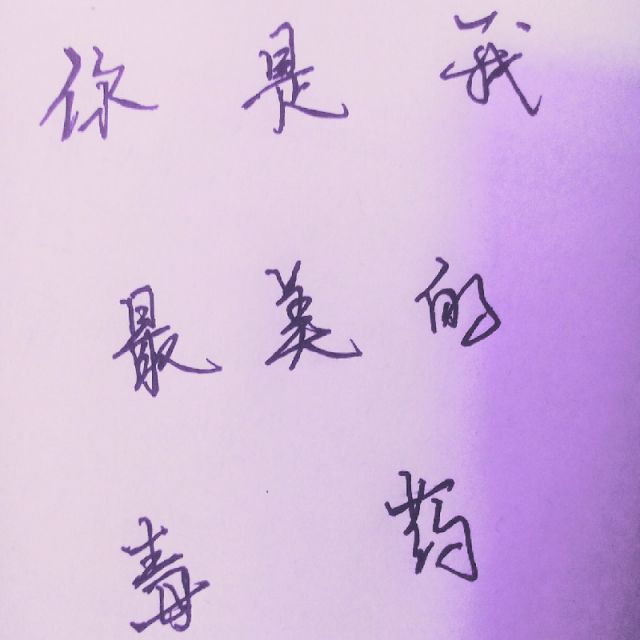 你是我
最美的
毒药